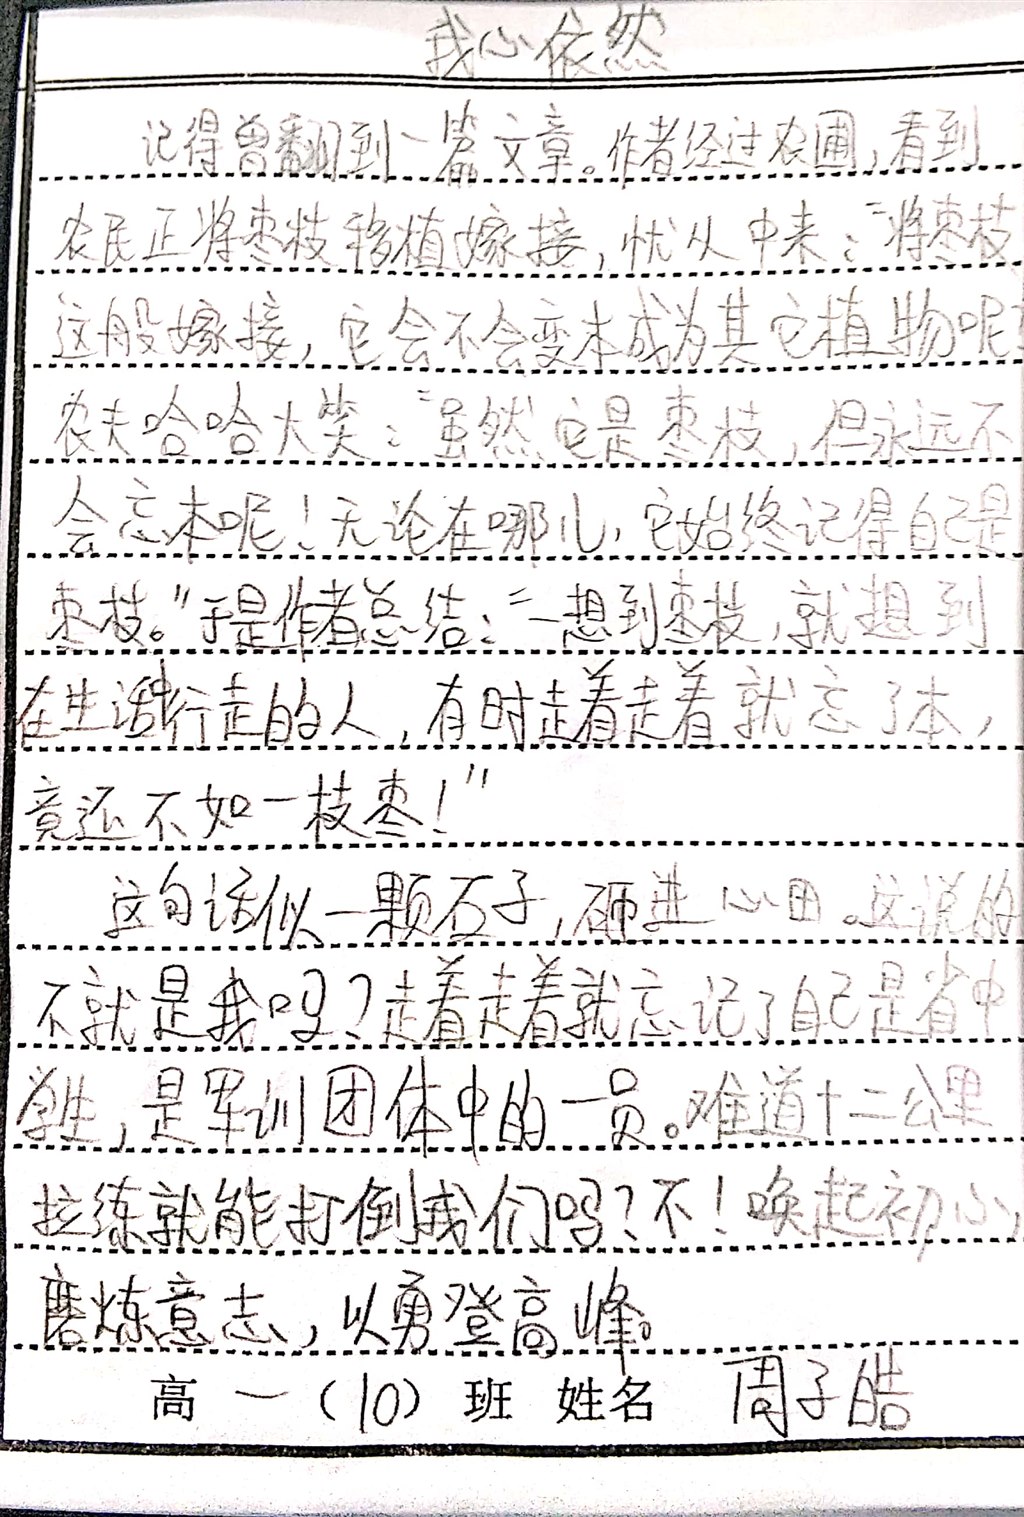 我心依然
记得曾翻到一篇文章。作者经过农圃,看到
农民正将枣枝移植嫁接,忧从中来:“将枣枝
这般嫁接,它会不会变本成为其它植物呢
农夫哈哈大笑:“虽然它是枣枝,但永远不
会忘本呢!无论在哪儿,它始终记得自己是
枣枝。”于是作者总结:“一想到枣枝,就想到
在生活中行走的人,有时走着走着就忘了本,
竟还不如一枝枣!”
这句话似一颗石子,砸进心田。这说的
不就是我吗?走着走着就忘记了自己是省中
学生,是军训团体中的一员。难道十二公里
拉练就能打倒我们吗?不!唤起初心,
磨炼意志,以勇登高峰。
高一(10)班 姓名 周子皓